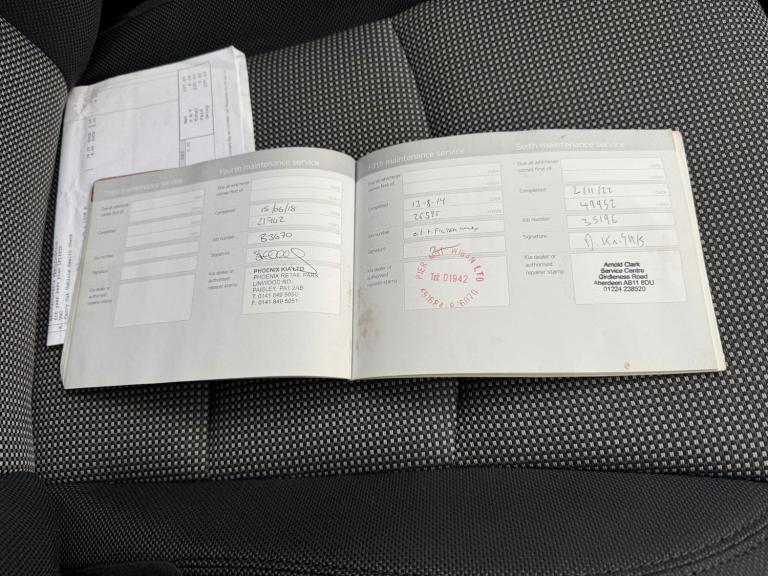 Third maintenance service
Due at whichever
comes first of:
date
miles
Completed
date
miles
Job number
Signature
Kia dealer or
authorised
repairer stamp
Fourth maintenance service
Due at whichever
comes first of:
date
miles
Completed
15/06/18
date
21942
miles
Job number
83670
Signature
Kia dealer or
authorised
repairer stamp
PHOENIX KIA LTD
PHOENIX RETAIL PARK
LINWOOD RD
PAISLEY. PA1 2AB
T: 0141 849 5050
F: 0141 849 5051
Fifth maintenance service
Due at whichever
comes first of:
date
miles
Completed
13-8-19
date
26595
miles
Job number
oil + Filter only
Signature
Kia dealer or
authorised
repairer stamp
LTD
Tel: 01942
Sixth maintenance service
Due at whichever
comes first of:
date
miles
Completed
2/11/22
date
49952
miles
Job number
35196
Signature
D. Knight
Kia dealer or
authorised
repairer stamp
Arnold Clark
Service Centre
Girdleness Road
Aberdeen AB11 8DU
01224 238520